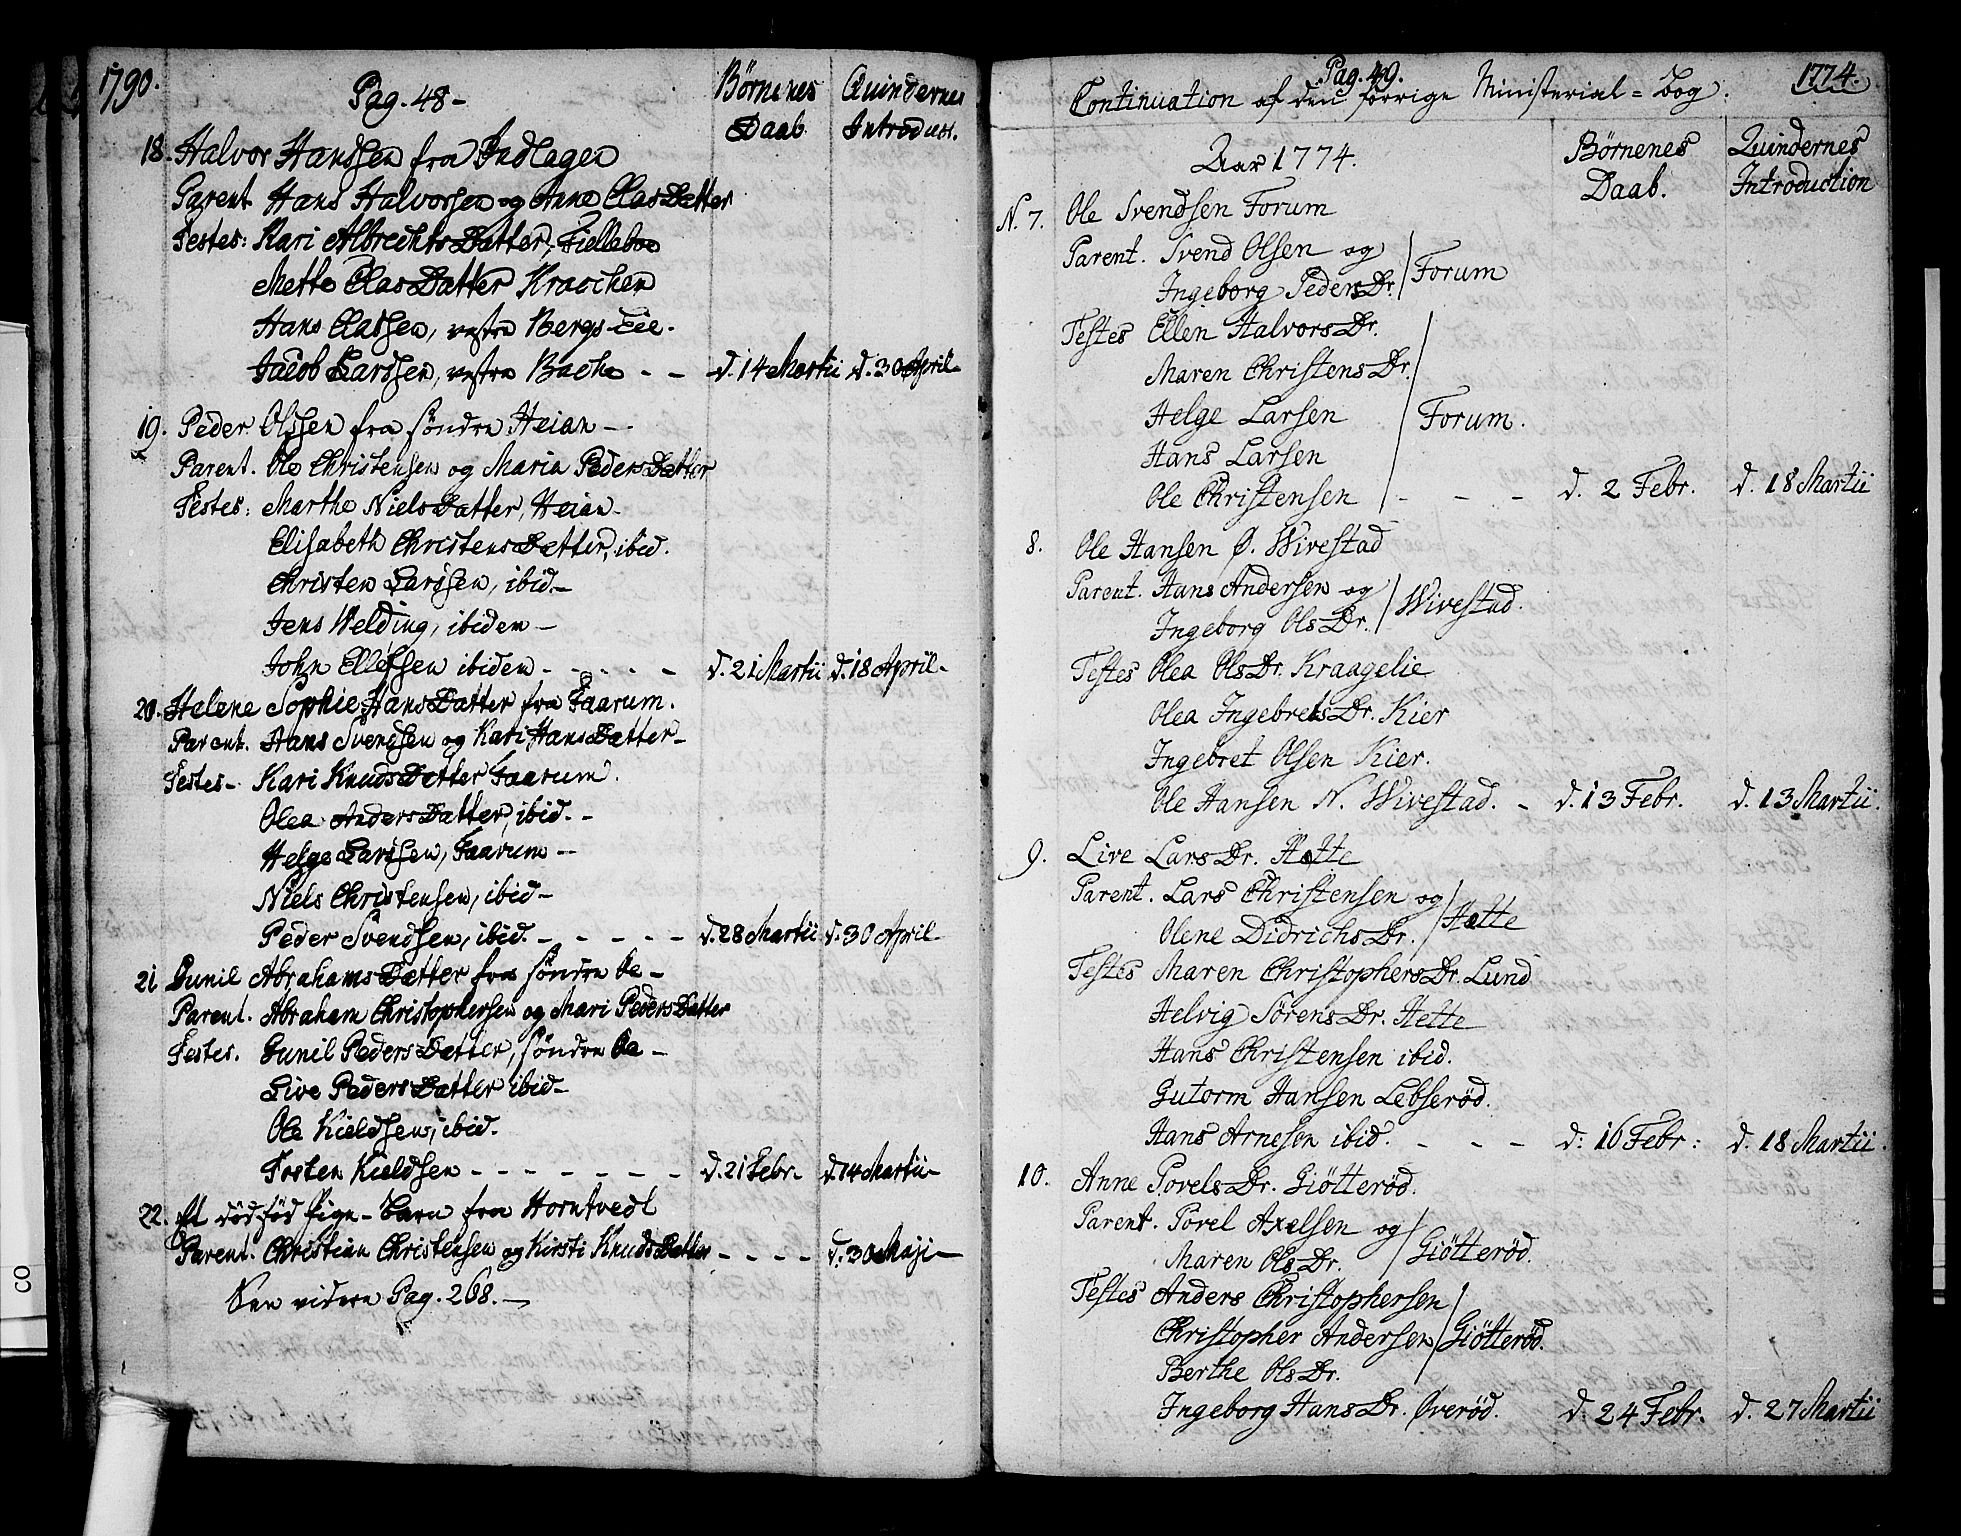 1790.
Pag. 48-
Börnenes Daab.
Quindernes Introduct.
18. Halvor Hansen fra Indlagen
Parent Hans Halvorsen og Anne ClasDatter
Testes: Kari AlbrechtsDatter, Fielleboe
Mette ClasDatter Kraachen
Hans Classen, vestre Bergs-Eie.
Jacob Larssen, vestre Bache - - d. 14 Martii d. 30 April-
19. Peder Olssen fra söndre Heian -
Parent. Ole Christensen og Maria PedersDatter
Testes: Marthe NielsDatter, Heian-
Elisabeth ChristensDatter, ibid.
Christen Larssen, ibid-
Jens Welding, ibidem-
John Ellefsen ibidem - - - - - d. 21 Martii d. 18 April-
20. Helene Sophie HansDatter fra Faarum.
Parent. Hans Svendsen og Kari HansDatter-
Testes- Kari KnudsDatter Faarum.
Olea AndersDatter, ibid.-
Helge Larssen, Faarum-
Niels Christensen, ibid-
Peder Svendsen, ibid. - - - - - d. 28 Martii d. 30 April-
21 Gunil AbrahamsDatter fra söndre Oe-
Parent. Abraham Christophersen og Mari PedersDatter
Testes. Gunil PedersDatter, söndre Oe-
Live PedersDatter ibid-
Ole Kieldsen, ibid.
Tosten Kieldsen - - - - - - - d. 21 Febr- d. 14 Martii-
22. Et död föd Pige-Barn fra Horntvedt
Parent. Christian Christensen og Kirsti KnudsDatter - - - - d: 30 Maji-
See videre Pag. 268.-
Pag. 49.
Continuation af den forrige Ministerial=Bog.
1774.
Aar 1774.
Börnenes Daab.
Quindernes Introduction
N. 7. Ole Svendsen Forum
Parent. Svend Olsen og
Ingeborg PedersDr. Forum
Testes Ellen HalvorsDr.
Maren ChristensDr.
Helge Larsen Forum.
Hans Larsen
Ole Christensen - - - d. 2 Febr. d. 18 Martii
8. Ole Hansen Ø. Wivestad
Parent. Hans Andersen og
Ingeborg OlsDr. Wivestad.
Testes Olea OlsDr. Kraagelie
Olea IngebretsDr. Kier
Ingebret Olsen Kier.
Ole Hansen N. Wivestad. - d. 13 Febr. d. 13 Martii.
9. Live LarsDr. Hætte
Parent. Lars Christensen og
Olene DidrichsDr. Hætte
Testes Maren ChristophersDr. Lund
Helvig SörensDr. Hette
Hans Christensen ibid.
Gutorm Hansen Lebseröd.
Hans Arnesen ibid. - - - d: 16 Febr: d. 18 Martii.
10. Anne PovelsDr. Giötteröd.
Parent. Povel Axelsen og
Maren OlsDr. Giötteröd.
Testes Anders Christophersen
Christopher Andersen Giötteröd.
Berthe OlsDr.
Ingeborg HansDr. Øveröd. d. 24 Febr. d. 27 Martii